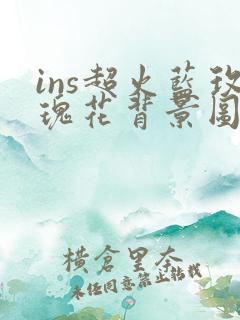 ins超火蓝玫
瑰花背景图
横倉里奈
未任同意禁止转载